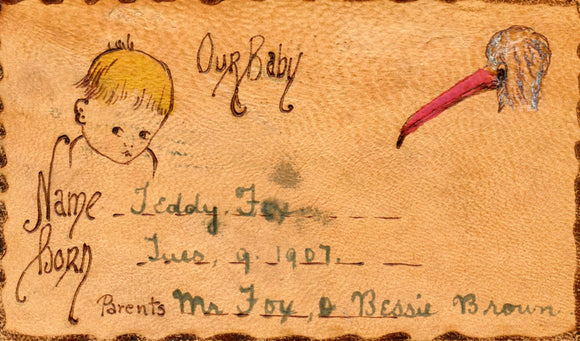 Our Baby
Name Teddy. Fox
Born Tues, 9. 1907.
Parents Mr Fox, & Bessie Brown